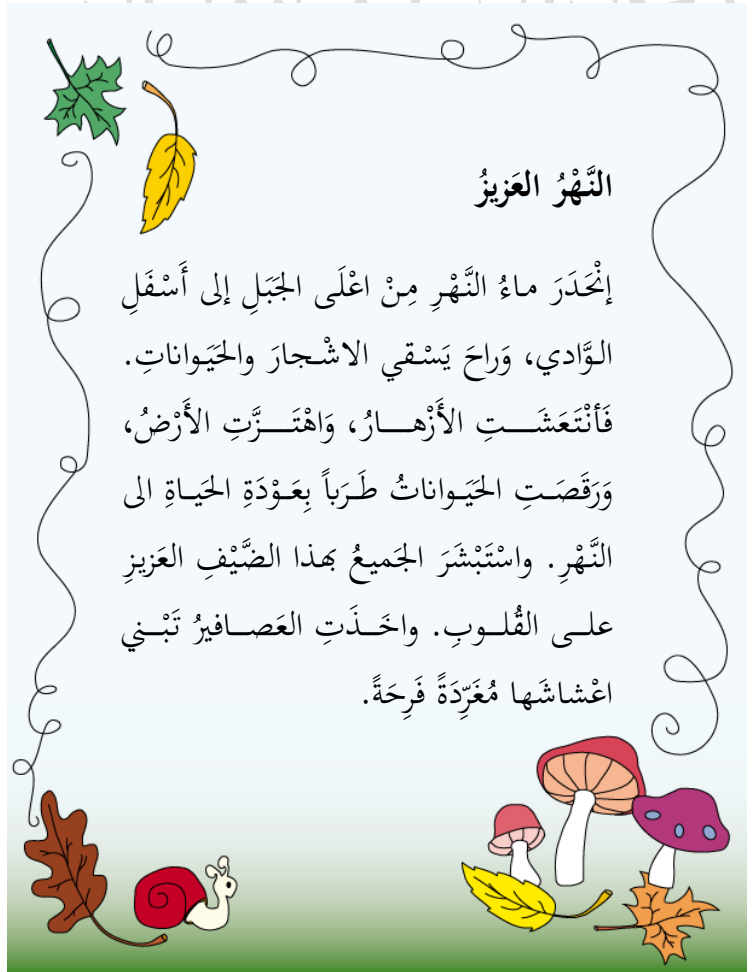 النَّهْرُ العَزيزُ
إنْحَدَرَ ماءُ النَّهْرِ مِنْ اعْلَى الجَبَلِ إلى أَسْفَلِ
الوَّادي، وَراحَ يَسْقي الاشْجارَ والحَيَواناتِ.
فَأنْتَعَشَتِ الأَزْهارُ، وَاهْتَزَّتِ الأَرْضُ،
وَرَقَصَتِ الحَيَواناتُ طَرَباً بِعَوْدَةِ الحَياةِ الى
النَّهْرِ. واسْتَبْشَرَ الجَميعُ بهذا الضَّيْفِ العَزيزِ
على القُلوبِ. واخَذَتِ العَصافيرُ تَبْني
اعْشاشَها مُغَرِّدَةً فَرِحَةً.